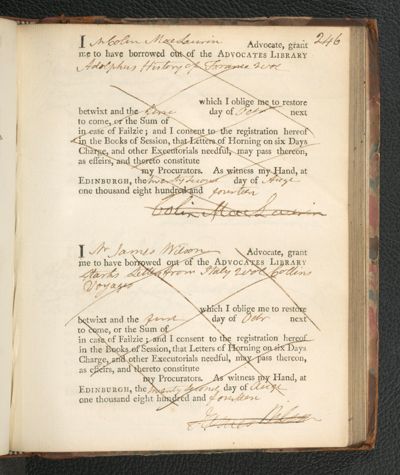 246
I Mr Colin MacLaurin Advocate, grant
me to have borrowed out of the ADVOCATES LIBRARY
Adolphus History of France 2 vol
which I oblige me to restore
betwixt and the first day of Octr next
to come, or the Sum of
in case of Failzie; and I consent to the registration hereof
in the Books of Session, that Letters of Horning on six Days
Charge, and other Executorials needful, may pass thereon,
as effeirs, and thereto constitute
my Procurators. As witness my Hand, at
EDINBURGH, the twenty second day of Augt
one thousand eight hundred and fourteen
Colin MacLaurin
I Mr James Wilson Advocate, grant
me to have borrowed out of the ADVOCATES LIBRARY
Starks Letters from Italy 2 vol Collins
Voyages
which I oblige me to restore
betwixt and the first day of Octr next
to come, or the Sum of
in case of Failzie; and I consent to the registration hereof
in the Books of Session, that Letters of Horning on six Days
Charge, and other Executorials needful, may pass thereon,
as effeirs, and thereto constitute
my Procurators. As witness my Hand, at
EDINBURGH, the twenty second day of Augt
one thousand eight hundred and fourteen
James Wilson